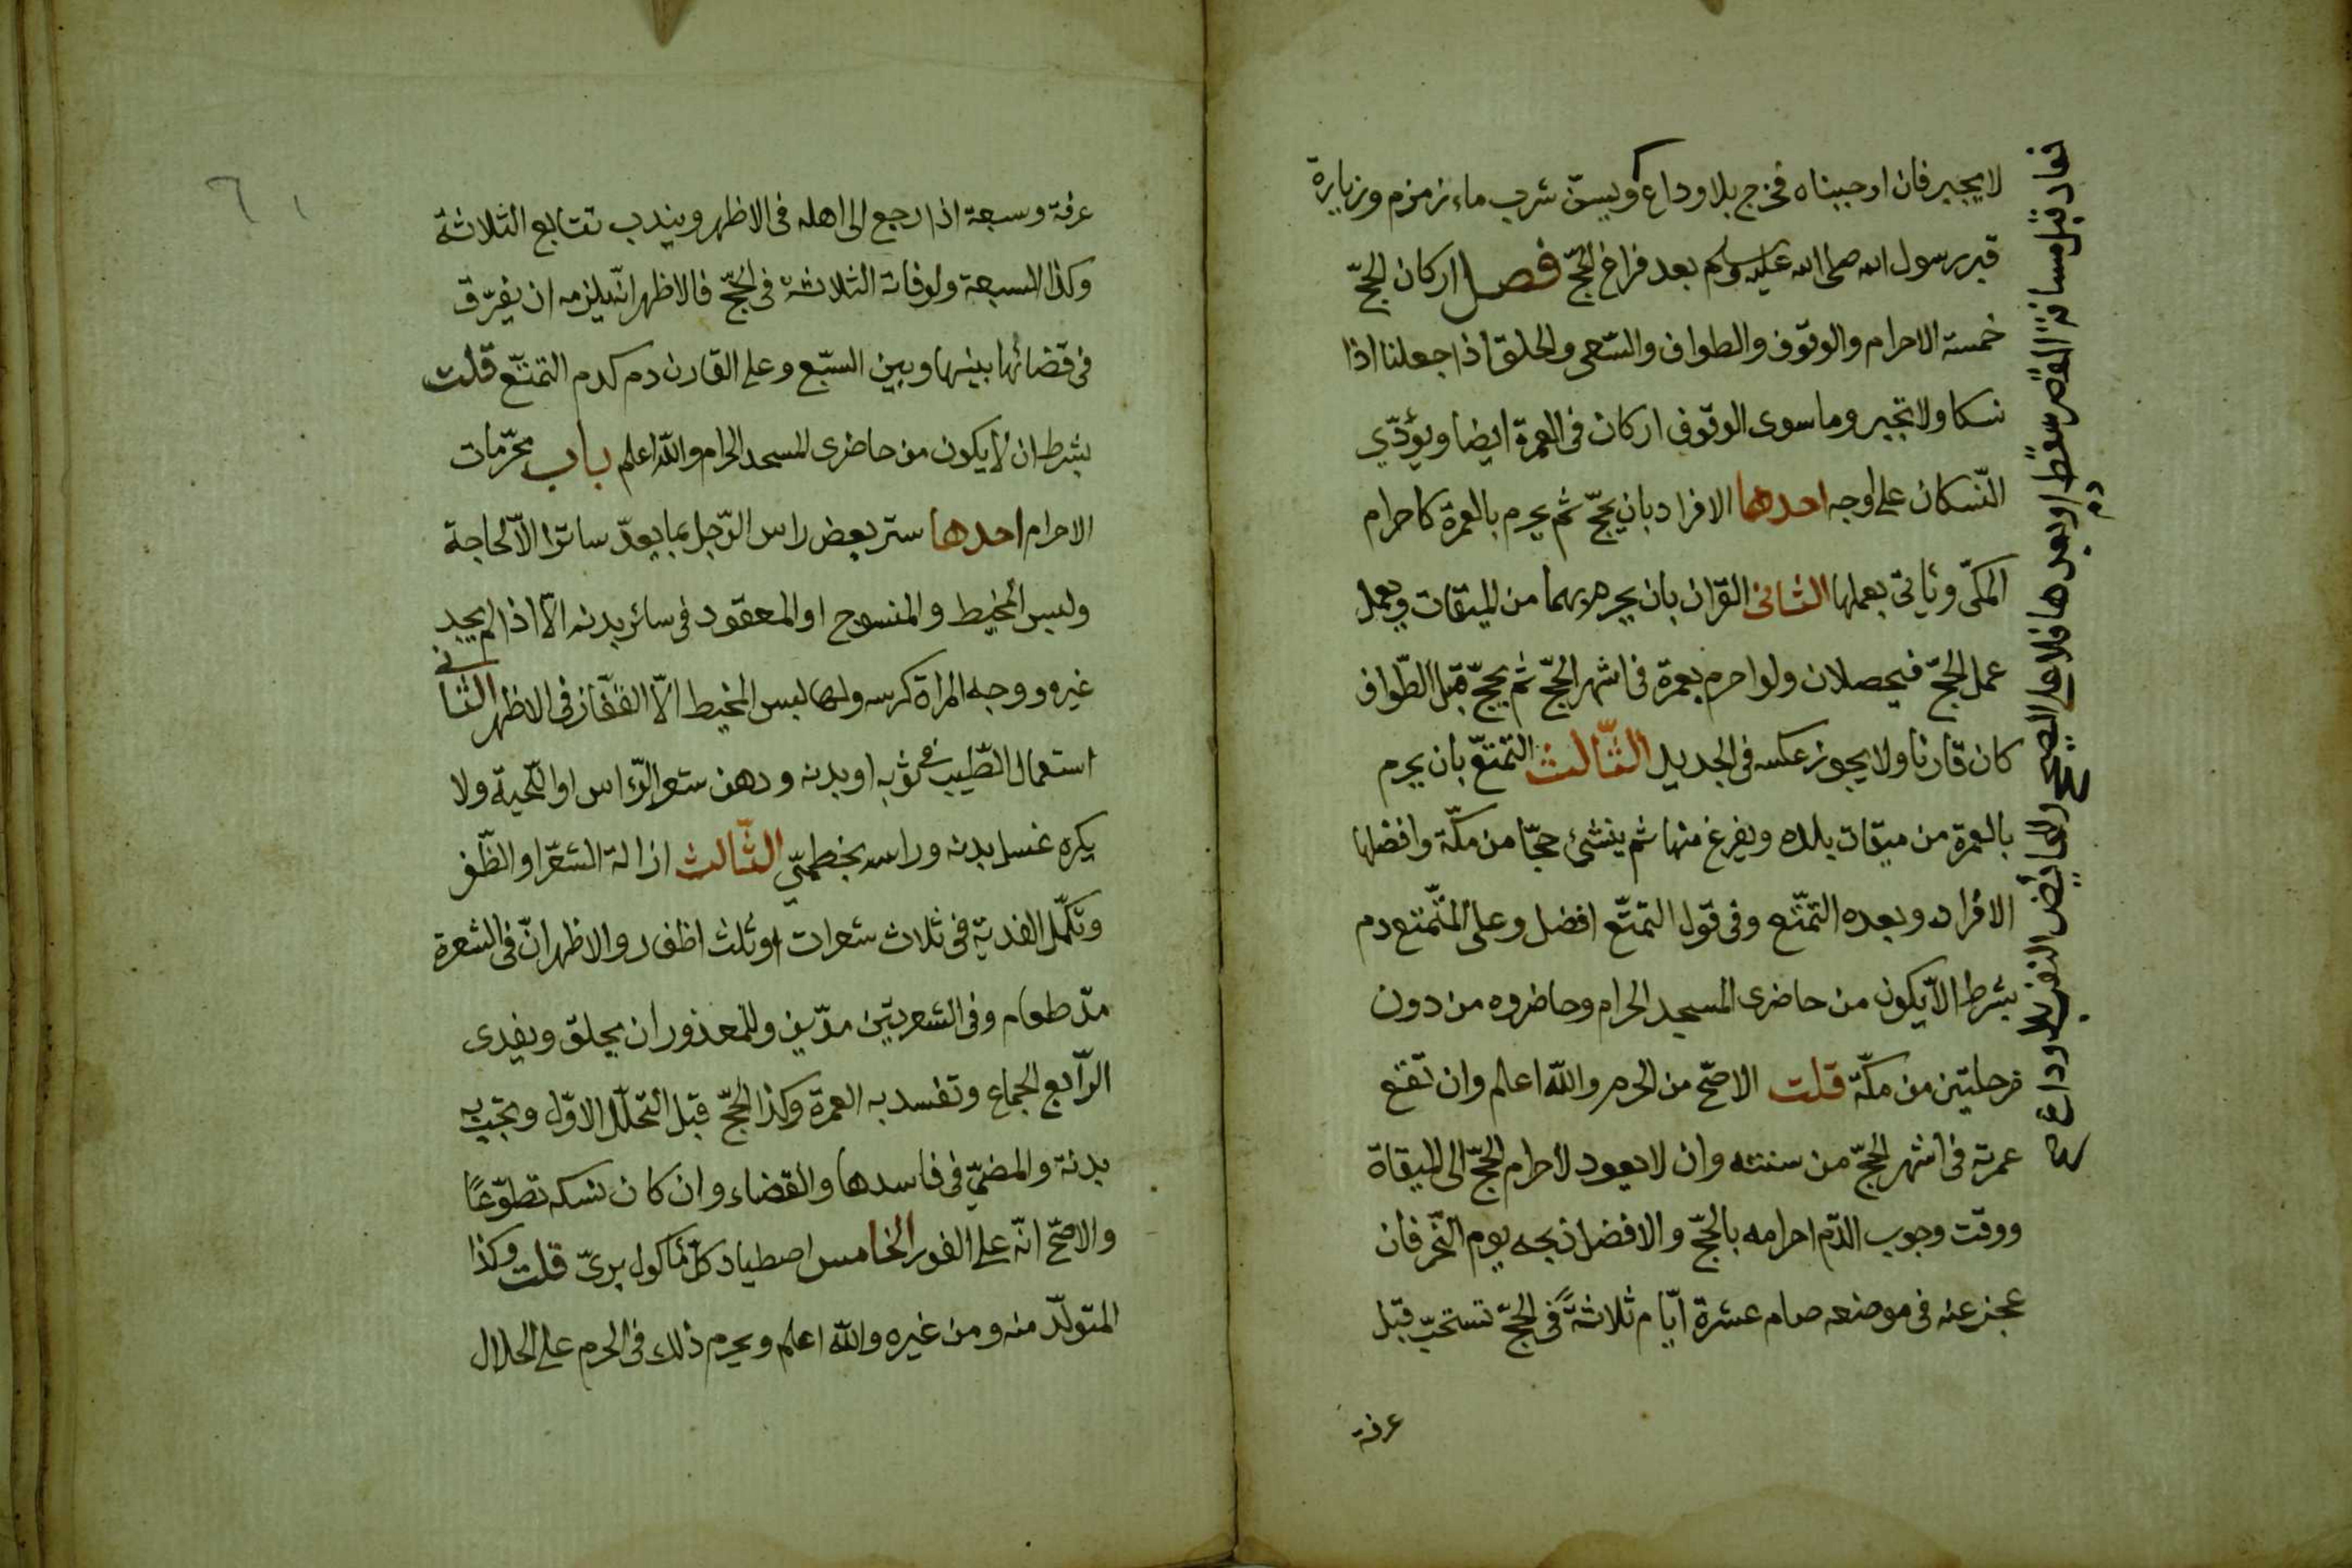 لا يجبر فان اوجبناه فخرج بلا وداع ويسنّ شرب ماء زمزم وزيارة
قبر رسول الله صلى الله عليه وسلم بعد فراغ الحجّ فصل اركان الحجّ
خمسة الاحرام والوقوف والطواف والسّعى والحلق اذا جعلنا اذا
نسكا ولا تجبر وما سوى الوقوف اركان فى العمرة ايضا ويؤدّي
النّسكان على اوجه احدها الافراد بان يحجّ ثم يحرم بالعمرة كاحرام
المكّى وياتى بعملها الثانى القران بان يحرم بهما من الميقات ويعمل
عمل الحجّ فيحصلان ولو احرم بعمرة فى اشهر الحجّ ثم يحجّ قبل الطّواف
كان قارنا ولا يجوز عكسه فى الجديد الثّالث التمتعّ بان يحرم
بالعمرة من ميقات بلده ويفرغ منها ثم ينشئ حجّا من مكّة وافضلها
الافراد وبعده التمتّع وفى قول التمتّع افضل وعلى المتمتع دم
بشرط الاّ يكون من حاضرى المسجد الحرام وحاضروه من دون
مرحلتين من مكّة قلت الاصحّ من الحرم والله اعلم وان تقع
عمرته فى اشهر الحجّ من سنته وان لا يعود لاحرام الحجّ الى الميقاة
ووقت وجوب الدّم احرامه بالحجّ والافضل ذبحه يوم النّحر فان
عجز عنه فى موضعه صام عشرة ايّام ثلاثةً فى الحجّ تستحبّ قبل
عرفة
فعاد قبل مسافة القصر سقط او بعدها فلا على الصحيح وللحائض النفر بلا وداع صح
دم
عرفة وسبعة اذا رجع الى اهله فى الاظهر ويندب تتابع الثلاثة
وكذا السبعة ولو فاته الثلاثة فى الحجّ فالاظهر انّه يلزمه ان يفرّق
فى قضائها بينها وبين السّبع وعلى القارن دم كدم التمتّع قلت
بشرط ان لا يكون من حاضرى المسجد الحرام والله اعلم باب محرّمات
الاحرام احدها ستر بعض راس الرّجل بما يعدّ ساترا الاّ لحاجة
ولبس المخيط والمنسوج او المعقود فى سائر بدنه الاّ اذا لم يجد
غيره ووجه المراة كرسه ولها لبس المخيط الاّ القفّاز فى الاظهر الثانى
استعمال الطّيب فى ثوبه او بدنه ودهن شعر الرّاس او اللّحية ولا
يكره غسل بدنه وراسه بخطميّ الثّالث ازالة الشعر او الظّفر
وتكمّل الفدية فى ثلاث شعرات او ثلث اظفار والاظهر انّ فى الشعرة
مدّ طعام وفى الشعرتين مدّين وللمعذور ان يحلق ويفدى
الرّابع الجماع وتفسد به العمرة وكذا الحجّ قبل التحلّل الاوّل وتجب به
بدنة والمضيّ فى فاسدها والقضاء وان كان نسكه تطوّعًا
والاصحّ انّه على الفور الخامس اصطياد كلّ ماكول برىّ قلت وكذا
المتولّد منه ومن غيره والله اعلم ويحرم ذلك فى الحرم على الحلال